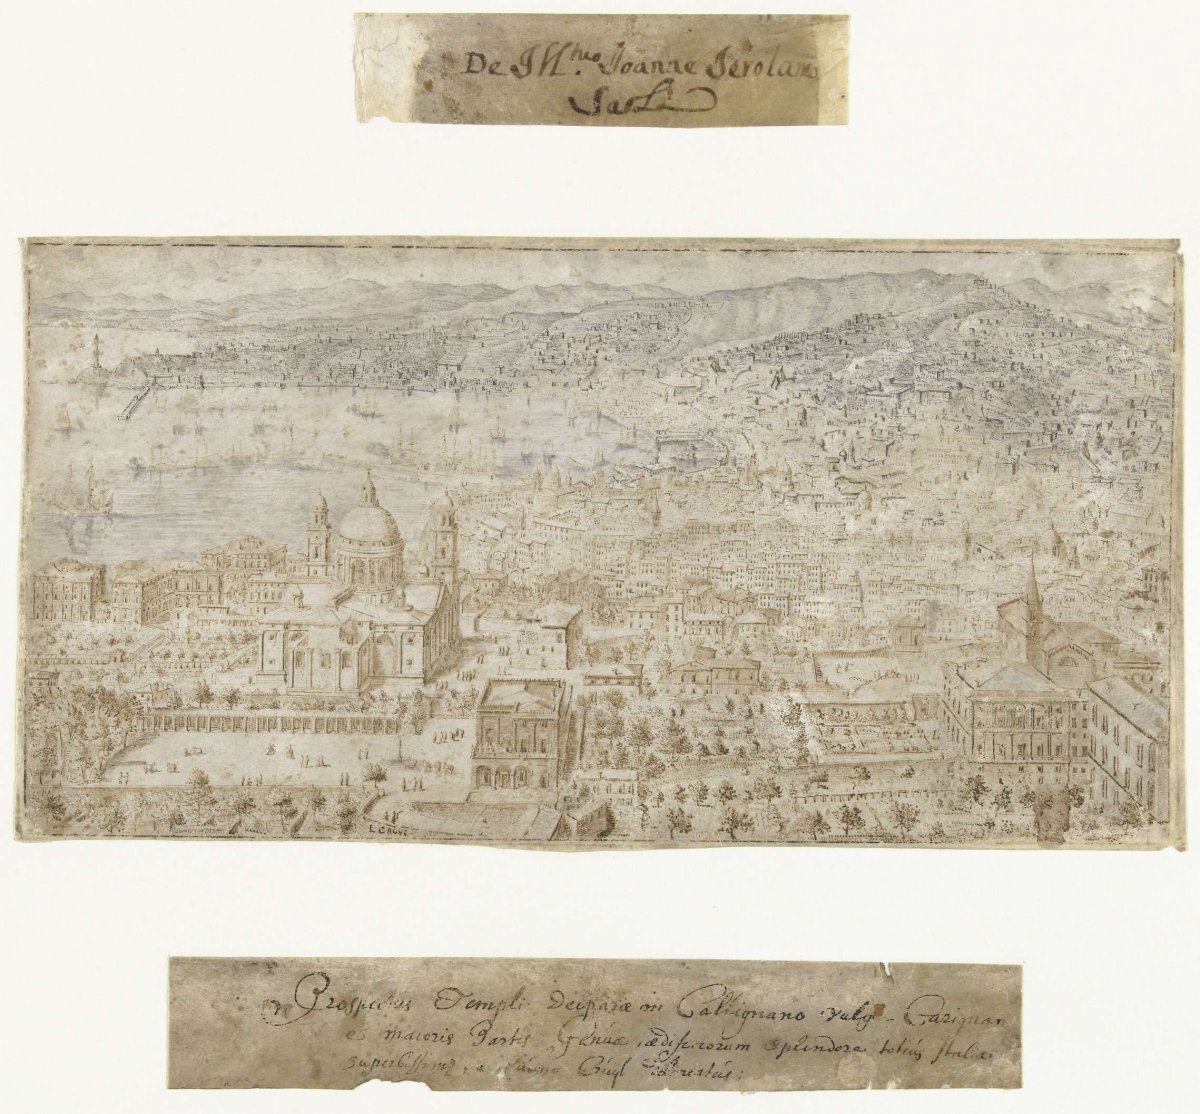 De Ill.mo Joanne Jerolamo
L. CRUYL
Prospectus Templi Deiparæ in Callignano vulg. Carignan
et maioris Partis Genuæ, ædificiorum splendore totius Italiæ
superbissimæ